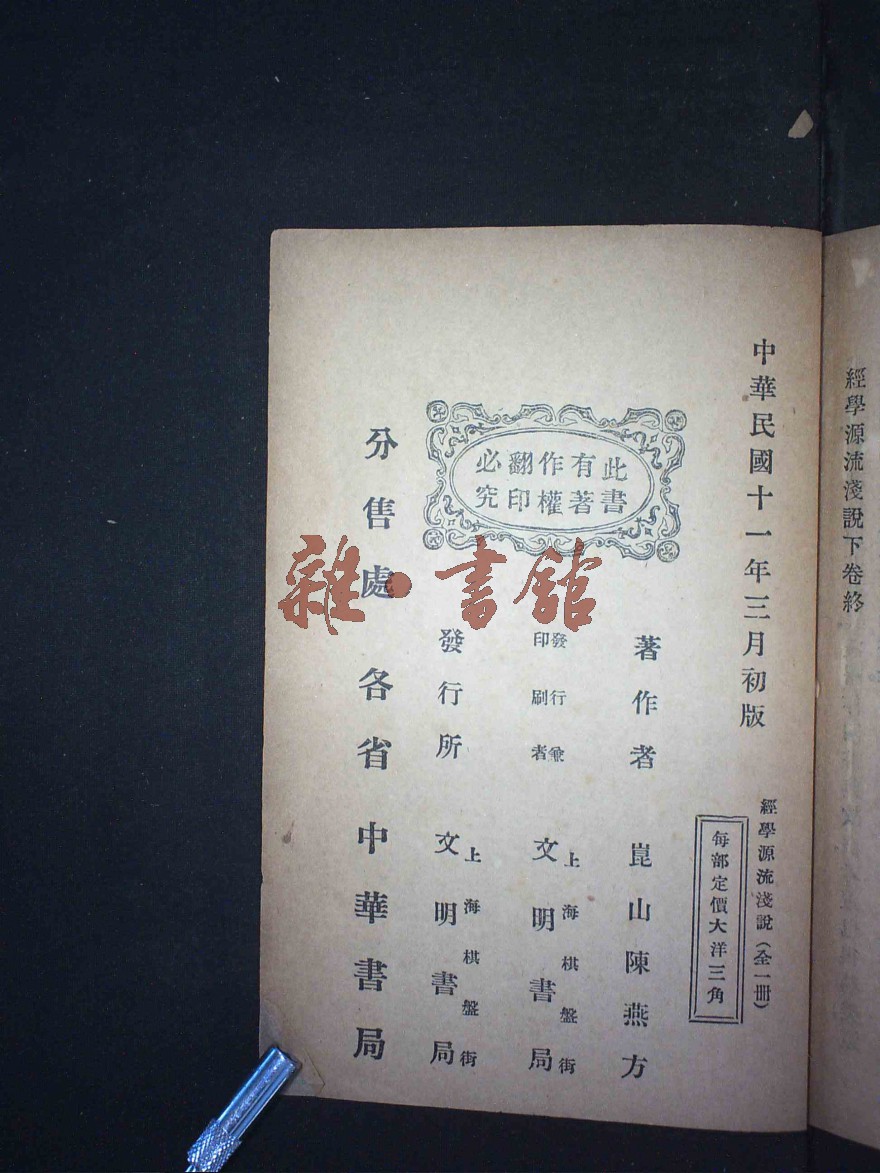 經學源流淺說下卷終
中華民國十一年三月初版
經學源流淺說（全一冊）
每部定價大洋三角
此書
有著
作權
翻印
必究
著作者 崑山陳燕方
發行兼
印刷者
上海棋盤街
文明書局
發行所
上海棋盤街
文明書局
分售處 各省中華書局
雜·書館